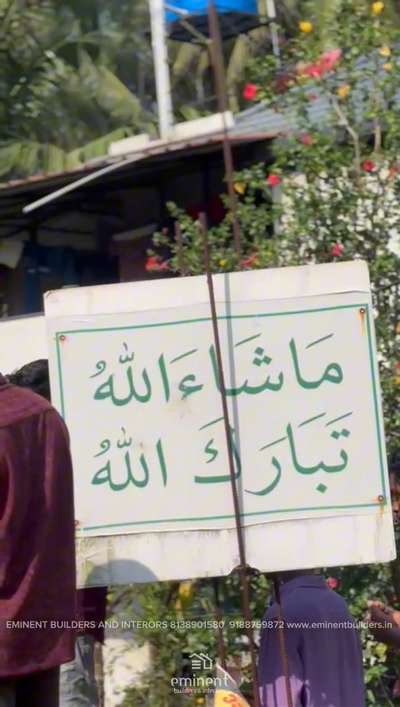 مَاشَاءَاللهُ
تَبَارَكَ اللهُ
EMINENT BUILDERS AND INTERORS 8138901580 9188759872 www.eminentbuilders.in
eminent